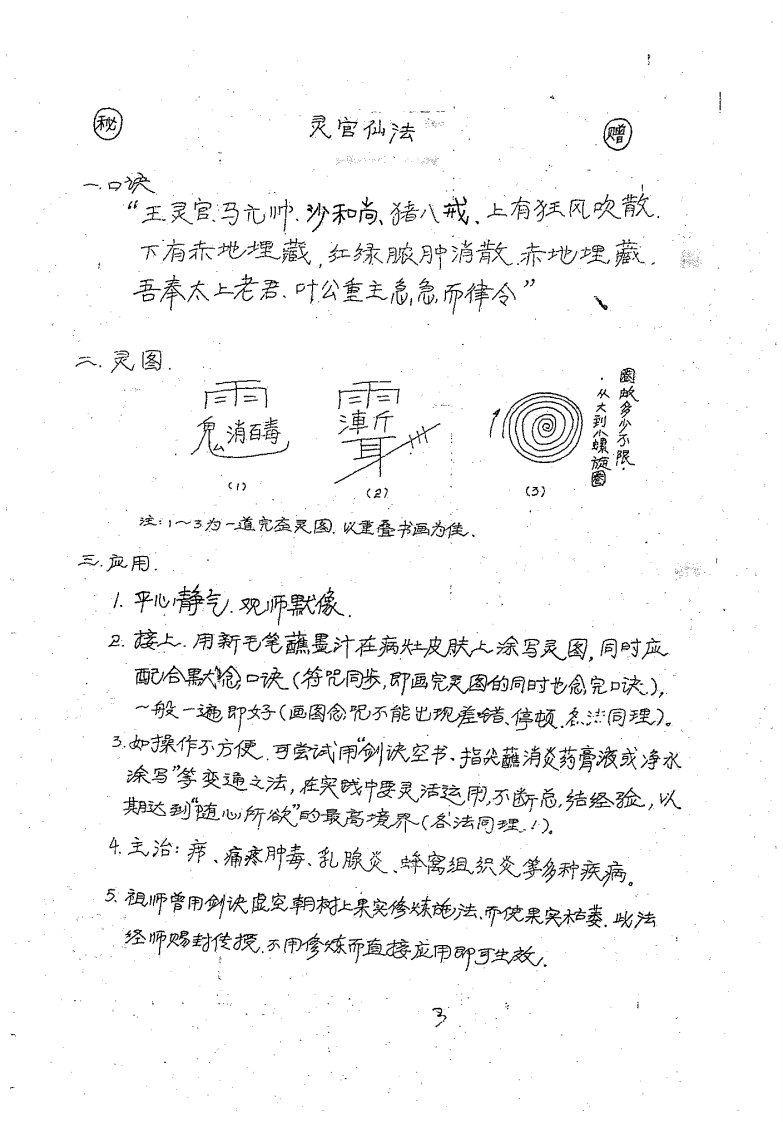 秘 灵官仙法 赠
一.口诀
“王灵官.马元帅.沙和尚、猪八戒、上有狂风吹散.
下有赤地埋藏,红绿脓肿消散.赤地埋藏.
吾奉太上老君、叶公重主急急而律令”
二.灵图.
雨 鬼 消百毒
(1)
(2)
(3)
圈成多少不限.
.从大到小螺旋圈
注:1~3为一道完整灵图.以重叠书画为佳.
三.应用.
1.平心静气.观师默像.
2.接上.用新毛笔蘸墨汁在病灶皮肤上涂写灵图,同时应
配合默念口诀(符咒同步,即画完灵图的同时也念完口诀.),
一般一遍即好(画图念咒不能出现差错、停顿.各法同理)。
3.如操作不方便.可尝试用“剑诀空书、指尖蘸消炎药膏液或净水
涂写”等变通之法,在实践中要灵活运用,不断总结经验,以
期达到“随心所欲”的最高境界(各法同理!)。
4.主治:疖、痛疼肿毒、乳腺炎、蜂窝组织炎等多种疾病。
5.祖师曾用剑诀虚空朝树上果实修炼施法.而使果实枯萎.此法
经师赐封传授.不用修炼而直接应用即可生效.
3